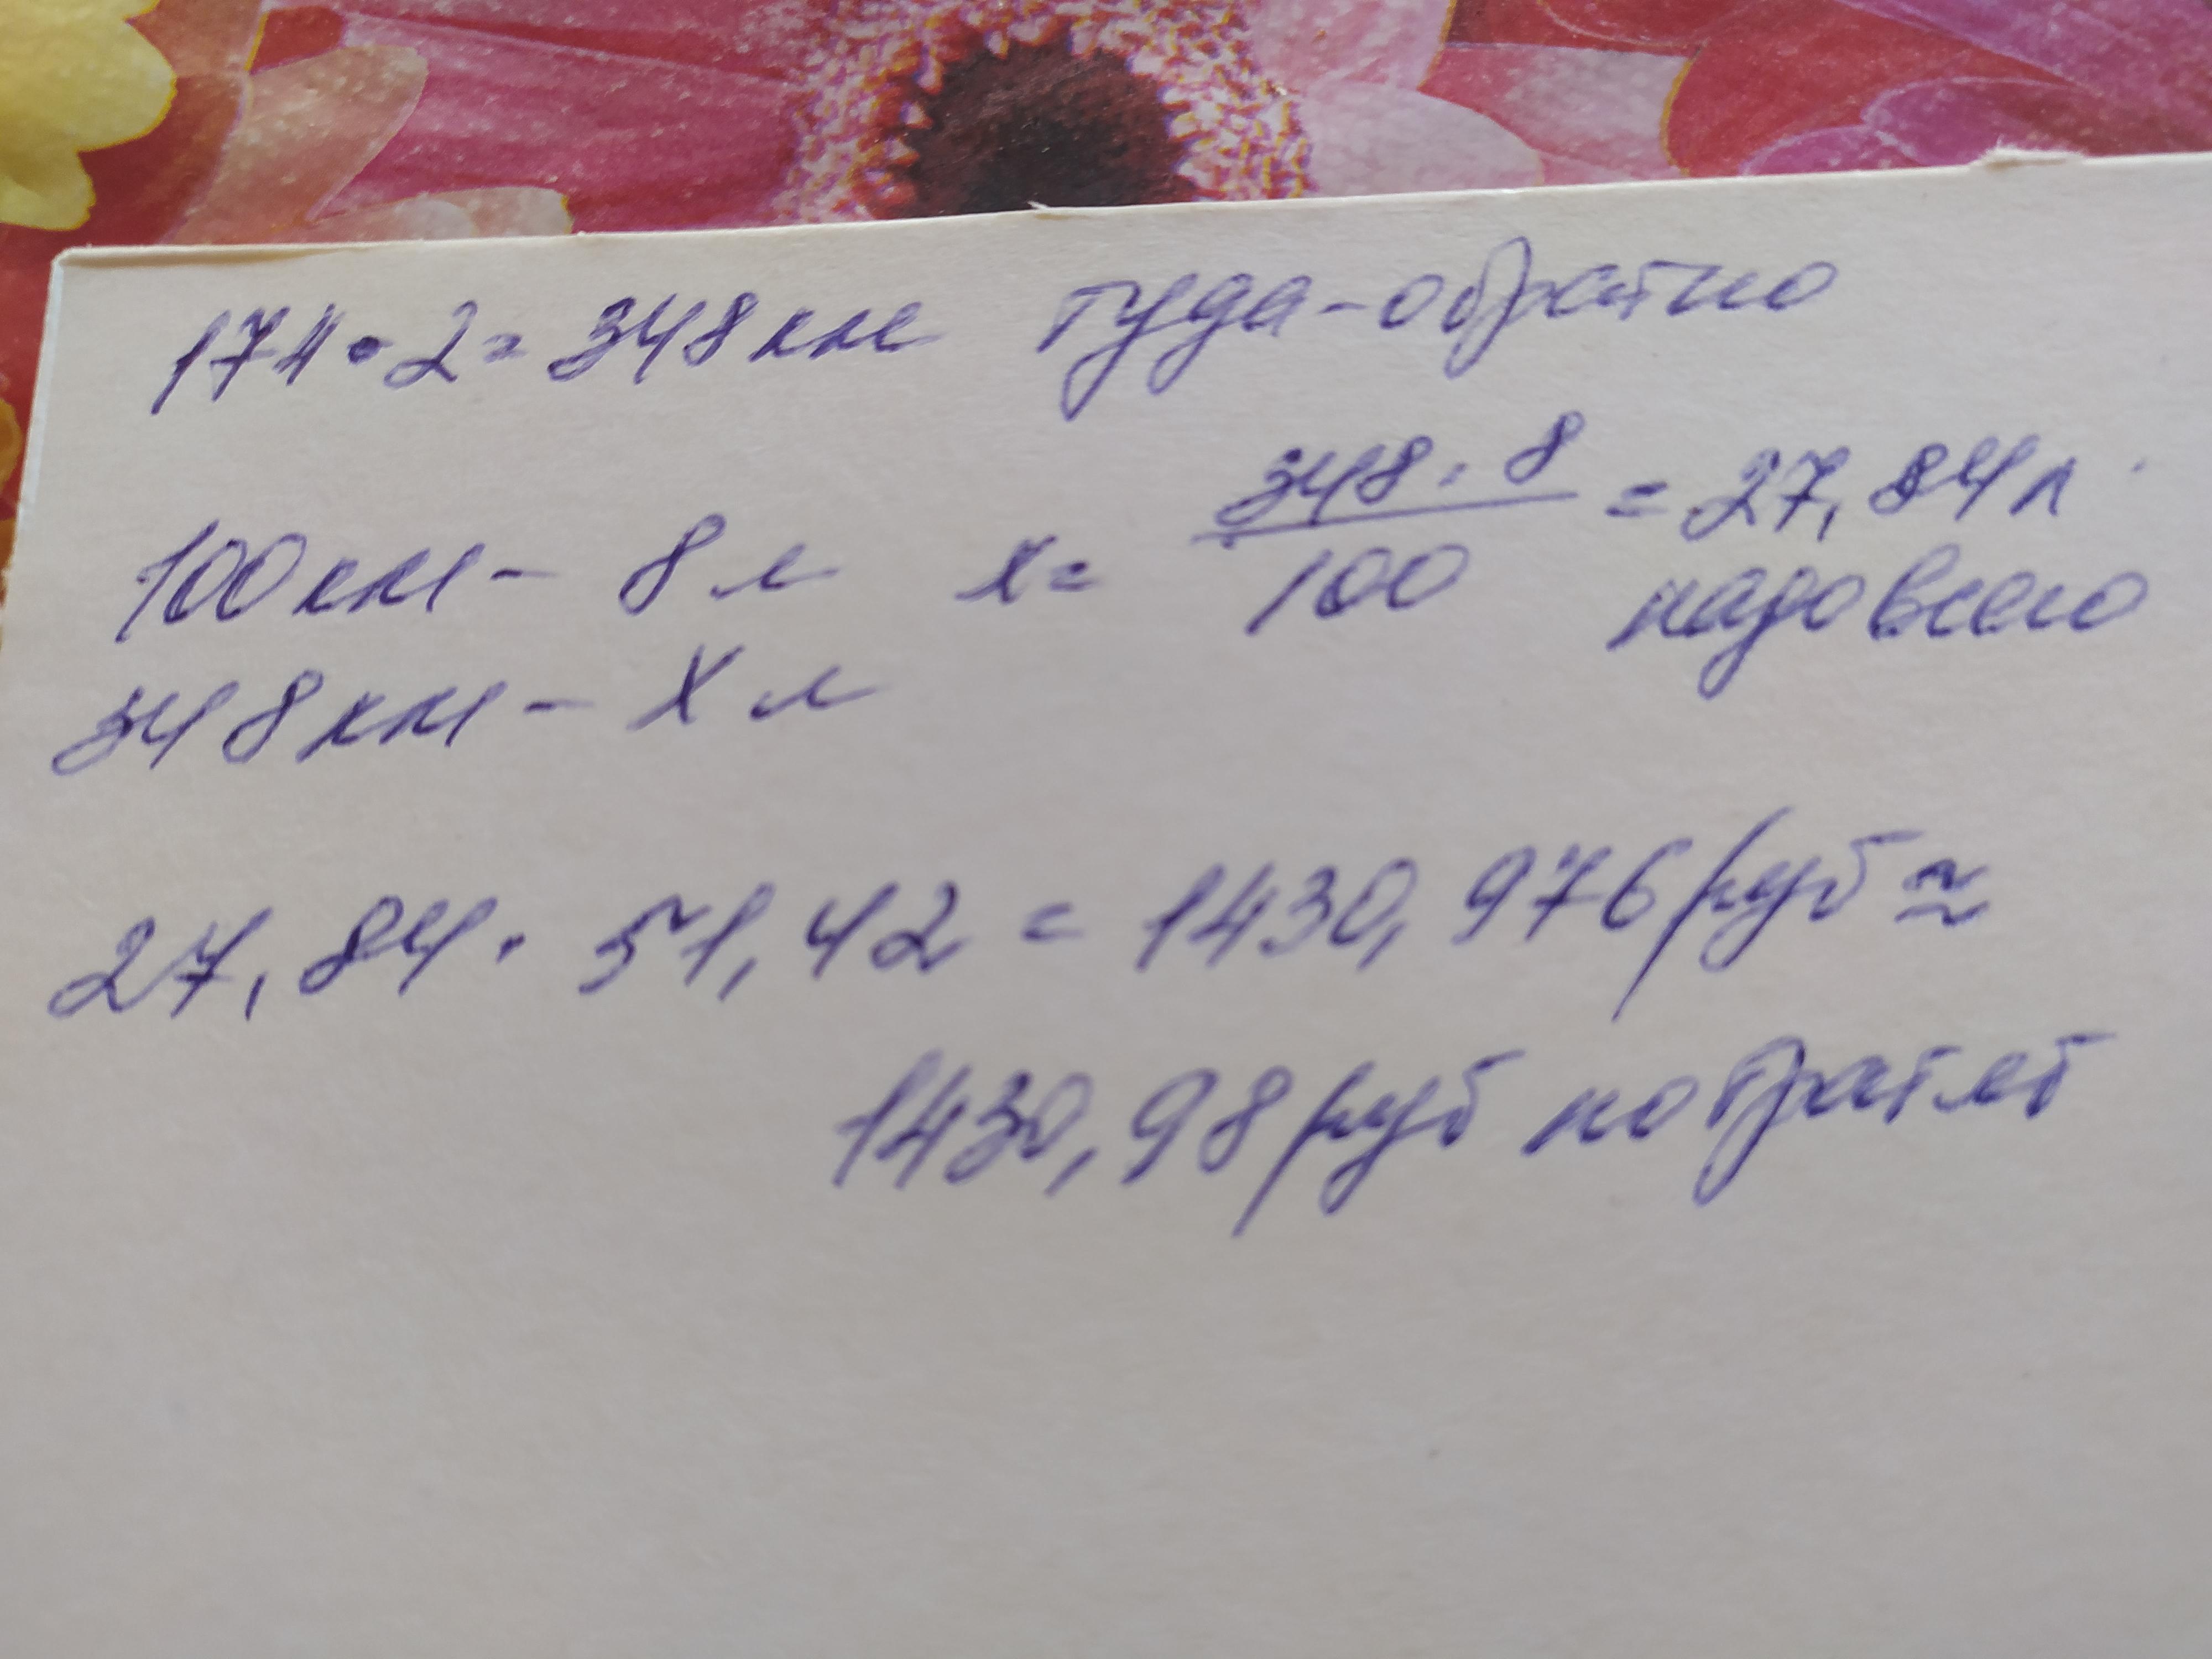 174 · 2 = 348 км туда-обратно
100 км - 8 л x = 348 · 8 / 100 = 27,84 л
348 км - x л надо всего
27,84 · 51,42 = 1430,976 руб ≈
1430,98 руб потратят